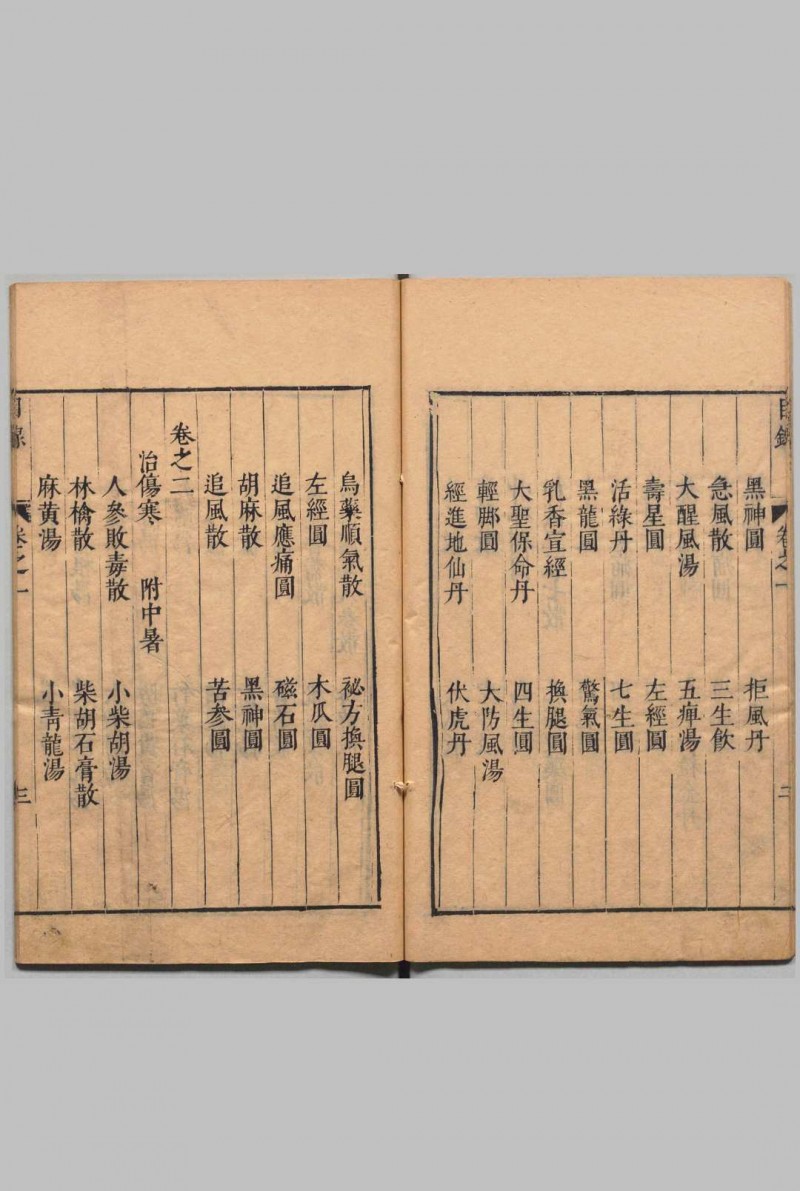 黑神圓　拒風丹
急風散　三生飲
大醒風湯　五痺湯
壽星圓　左經圓
活綠丹　七生圓
黑龍圓　驚氣圓
乳香宣經　換腿圓
大聖保命丹　四生圓
輕脚圓　大防風湯
經進地仙丹　伏虎丹
烏藥順氣散　祕方換腿圓
左經圓　木瓜圓
追風應痛圓　磁石圓
胡麻散　黑神圓
追風散　苦參圓
卷之二
治傷寒　附中暑
人參敗毒散　小柴胡湯
林檎散　柴胡石膏散
麻黃湯　小青龍湯
卷之一　三